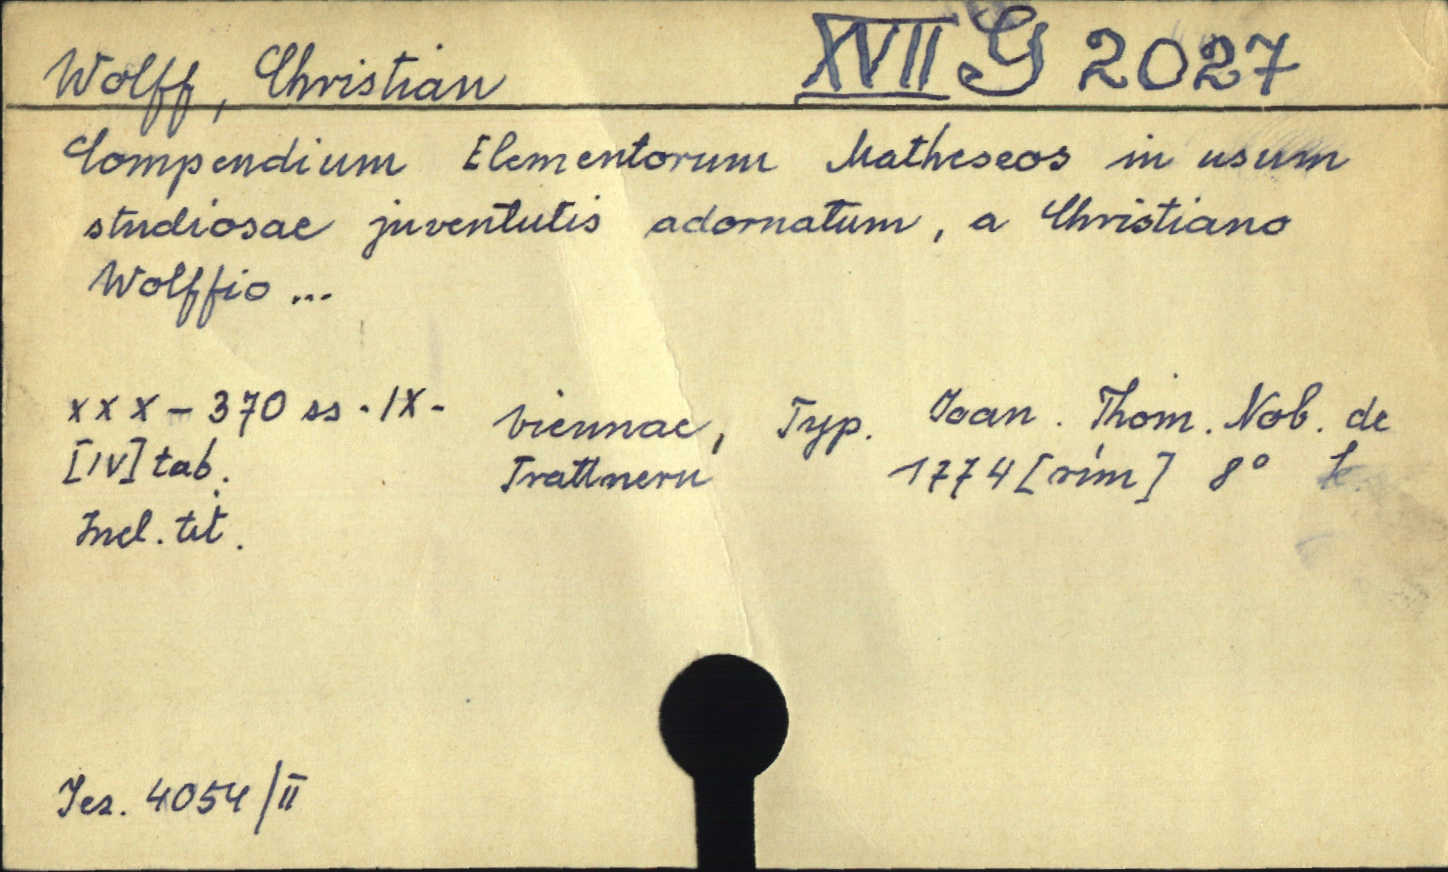 Wolff, Christian XVII G 2027
Compendium Elementorum Matheseos in usum
studiosae juventutis adornatum, a Christiano
Wolffio ...
XXX - 370 ss - IX - Viennae, Typ. Ioan. Thom. Nob. de
[IV] tab. Trattnern 1774 [rím] 8° k
Incl. tit.
Jez. 4054/II